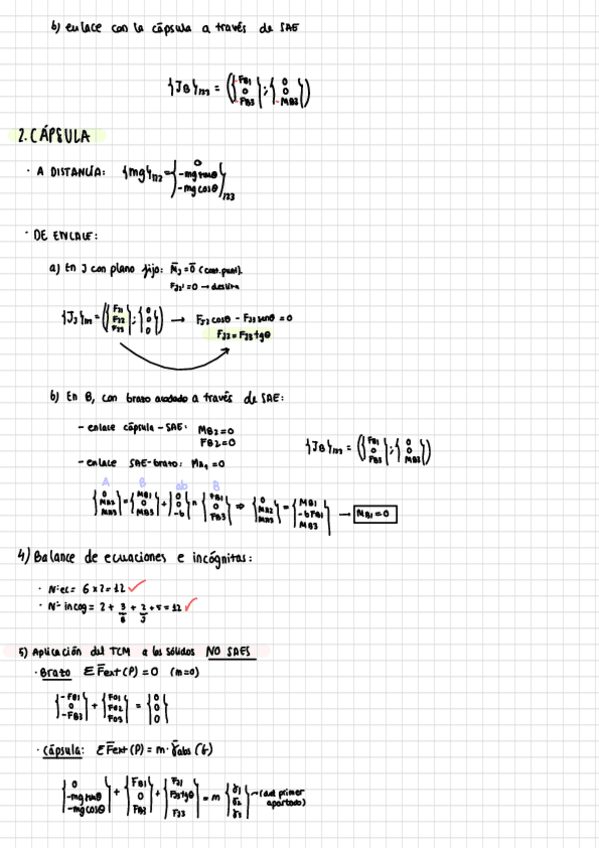 b) enlace con la cápsula a través de SAE
{J_B}_m = ({-F_B1 0 -F_B3} ; {0 0 -M_B3})
2. CÁPSULA
· A DISTANCIA: {mg}_123 = {0 -mg senθ -mg cosθ}_123
· DE ENLACE:
a) En J con plano fijo: M̄_J = 0̄ (cont. punt).
F_J2' = 0 → desliza
{J_J}_m = ({F_J1 F_J2 F_J3} ; {0 0 0}) → F_J2 cosθ - F_J3 senθ = 0
F_J2 = F_J3 tgθ
b) En B, con brazo acodado a través de SAE:
- enlace cápsula - SAE: M_B2 = 0
F_B2 = 0
{J_B}_m = ({F_B1 0 F_B3} ; {0 0 M_B3})
- enlace SAE-brazo: M_A1 = 0
A B ab B
{0 M_A2 M_A3} = {M_B1 0 M_B3} + {0 0 -b} ∧ {F_B1 0 F_B3} ⇒ {0 M_A2 M_A3} = {M_B1 -bF_B1 M_B3} → M_B1 = 0
4) Balance de ecuaciones e incógnitas:
· Nº ec = 6 x 2 = 12 ✓
· Nº incog = 2 + 3 + 2 + 5 = 12 ✓
J
5) Aplicación del TCM a los sólidos NO SAES
· Brazo ΣF̄ext (P) = 0 (m=0)
{-F_B1 0 -F_B3} + {F_O1 F_O2 F_O3} = {0 0 0}
· Cápsula: ΣF̄ext (P) = m · γ̄abs (G)
{0 -mg senθ -mg cosθ} + {F_B1 0 F_B3} + {F_J1 F_J3 tgθ F_J3} = m {γ1 γ2 γ3} → (del primer
apartado)